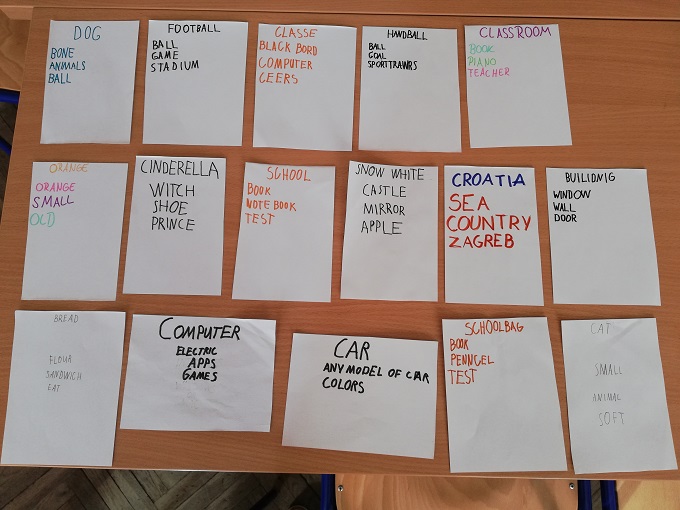 DOG
BONE
ANIMALS
BALL
FOOTBALL
BALL
GAME
STADIUM
CLASSE
BLACK BORD
COMPUTER
CEERS
HANDBALL
BALL
GOAL
SPORTTRAWRS
CLASSROOM
BOOK
PIANO
TEACHER
ORANGE
ORANGE
SMALL
OLD
CINDERELLA
WITCH
SHOE
PRINCE
SCHOOL
BOOK
NOTE BOOK
TEST
SNOW WHITE
CASTLE
MIRROR
APPLE
CROATIA
SEA
COUNTRY
ZAGREB
BUILIDNIG
WINDOW
WALL
DOOR
BREAD
FLOUR
SANDWICH
EAT
COMPUTER
ELECTRIC
APPS
GAMES
CAR
ANY MODEL OF CAR
COLORS
SCHOOLBAG
BOOK
PENNCEL
TEST
CAT
SMALL
ANIMAL
SOFT